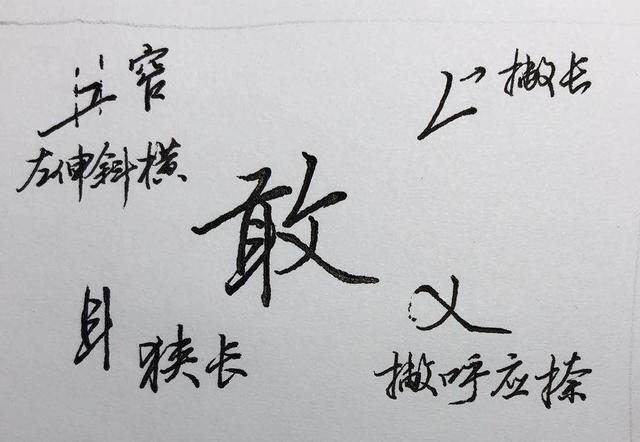 窄
左伸斜横
撇长
敢
狭长
撇呼应捺